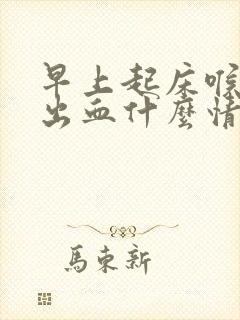 早上起床喉
出血什麼情
馬東新